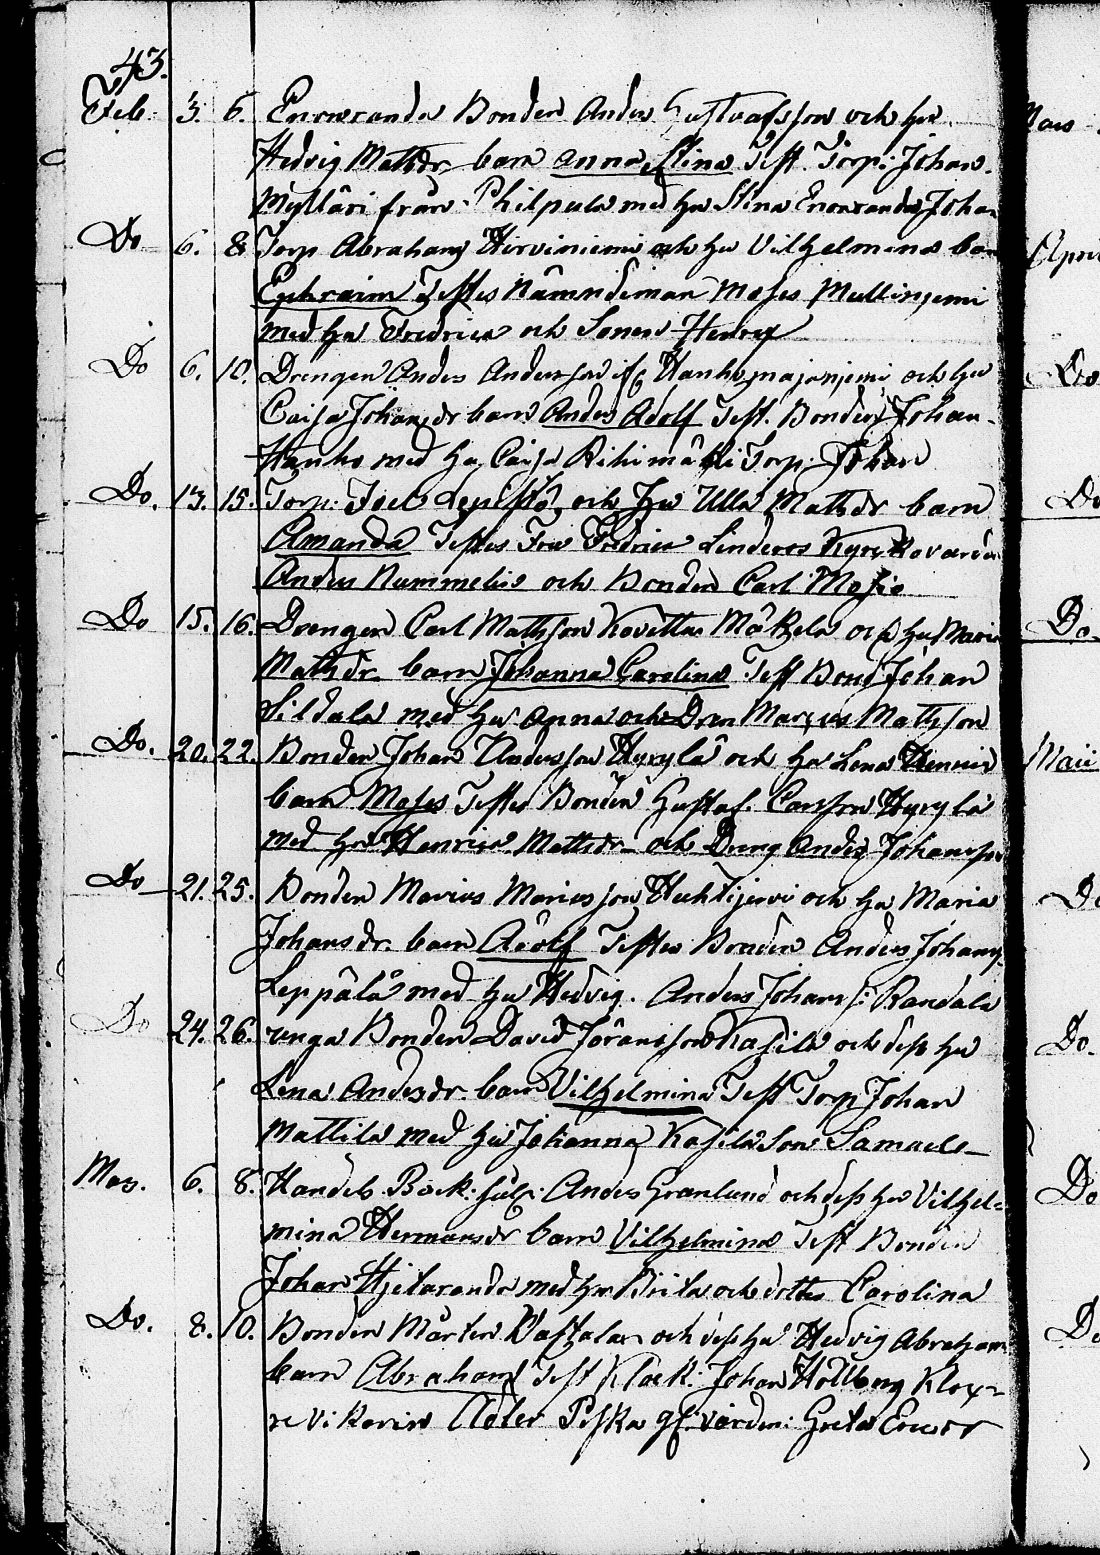 43.
Feb. 3. 6. Enowranda Bonden Anders Gustafsson och hu
Hedvig Matsdr barn Anna Stina Test. Torp: Johan
Mylläri från Philpula med hu Stina Enowranda Johan
Do 6. 8 Torp Abraham Hirviniemi och hu Vilhelmina barn
Ephraim Testes Nämndeman Moses Mullinjemi
med hu Fredrica och Sonen Henry
Do 6. 10. Drengen Anders Andersson Hanho majanjemi och hu
Caisa Johansdr barn Anders Adolf Test. Bonden Johan
Hanho med hu Caisa Rihimäki Torp: Johan
Do. 13. 15. Torp: Joel Lepistö och Hu Ulla Matsdr barn
Amanda Testes Fru Fredrica Linderos Kyrkovärden
Anders Nummelin och Bonden Carl Mosio
Do 15. 16. Drengen Carl Matsson Mäkelä och hu Maria
Matsdr barn Johanna Carolina Test Bond Johan
Sildala med hu Anna och Dren Marcus Matsson
Do. 20. 22. Bonden Johan Andersson Hyrylä och hu Lena
barn Moses Testes Bonden Gustaf Carlsson Hyrylä
med hu Henrica Matsdr och Dreng Anders Johansson
Do 21. 25. Bonden Marius Mariesson Huhtijervi och hu Maria
Johansdr barn Adolf Testes Bonden Anders Johans
Leppälä med hu Hedvig. Anders Johans Randala
Do 24. 26. unga Bonden David Göransson Kasila och dess hu
Lena Andersdr barn Vilhelmina Test Torp Johan
Mattila med hu Johanna Kasila Son Samuel
Mar. 6. 8. Handels Bock: Anders Granlund och dess hu Vilhel=
mina Hermansdr barn Vilhelmina Test Bonden
Johan Hjetaranda med hu Brita och dotter Carolina
Do. 8. 10. Bonden Mårten och dess hu Hedvig Abraham
barn Abraham Test Klock: Johan Hollberg Klock=
re Vikarien Adler Pigka Greta Ericsdr
Mars
April
Do
Do
Do.
Maii
Do
Do.
Do
Do